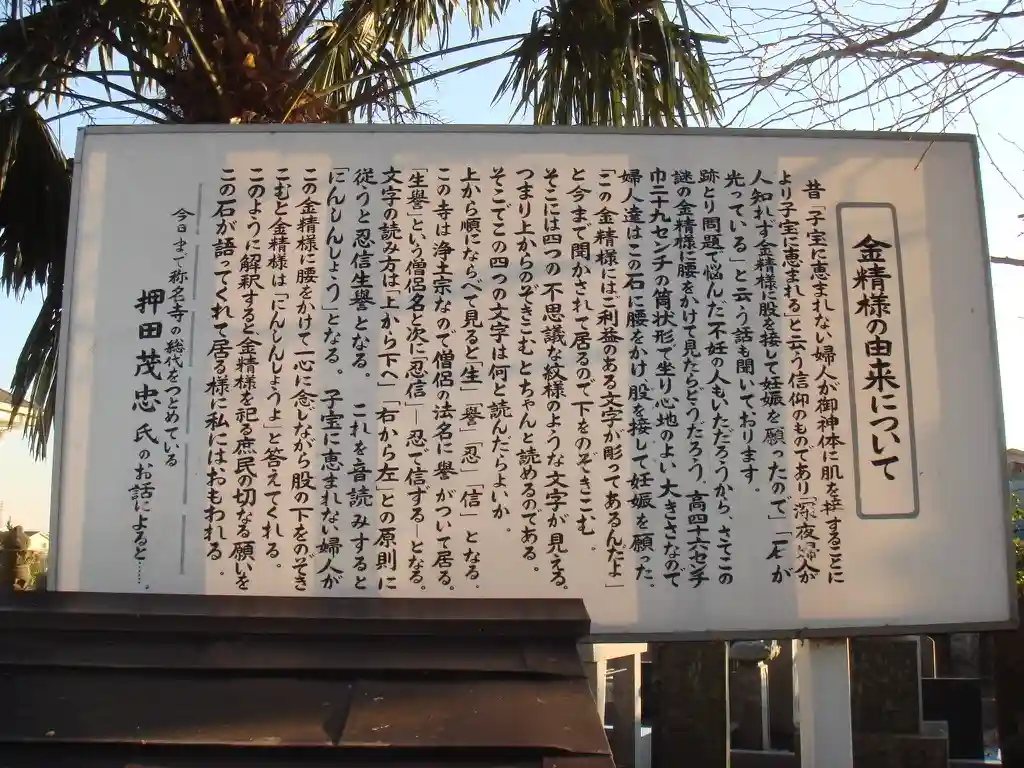 金精様の由来について
昔「子宝に恵まれない婦人が御神体に肌を接することに
より子宝に恵まれる」と云う信仰のものであり「深夜婦人が
人知れず金精様に股を接して妊娠を願ったので」「上が
光っている」と云う話も聞いております。
跡とり問題で悩んだ不妊の人もいただろうから、さてこの
謎の金精様に腰をかけて見たらどうだろう、高四十六センチ
巾二十九センチの筒状形で坐り心地のよい大きさなので
婦人達はこの石に腰をかけ股を接して妊娠を願った。
「この金精様にはご利益のある文字が彫ってあるんだよ」
と今まで聞かされて居るので下をのぞきこむ。
そこには四つの不思議な紋様のような文字が見える。
つまり上からのぞきこむとちゃんと読めるのである。
そこでこの四つの文字は何と読んだらよいか。
上から順にならべて見ると「生」「誉」「忍」「信」となる。
この寺は浄土宗なので僧侶の法名に誉がついて居る。
「生誉」という僧侶名と次に「忍信」―忍で信ずる―となる。
文字の読み方は「上から下へ」「右から左」との原則に
従うと忍信生誉となる。 これを音読みすると
「にんしんしょう」となる。 子宝に恵まれない婦人が
この金精様に腰をかけて一心に念じながら股の下をのぞき
こむと金精様は「にんしんしようよ」と答えてくれる。
このように解釈すると金精様を祀る庶民の切なる願いを
この石が語ってくれて居る様に私にはおもわれる。
今日まで称名寺の総代をつとめている
押田茂忠氏のお話によると……。